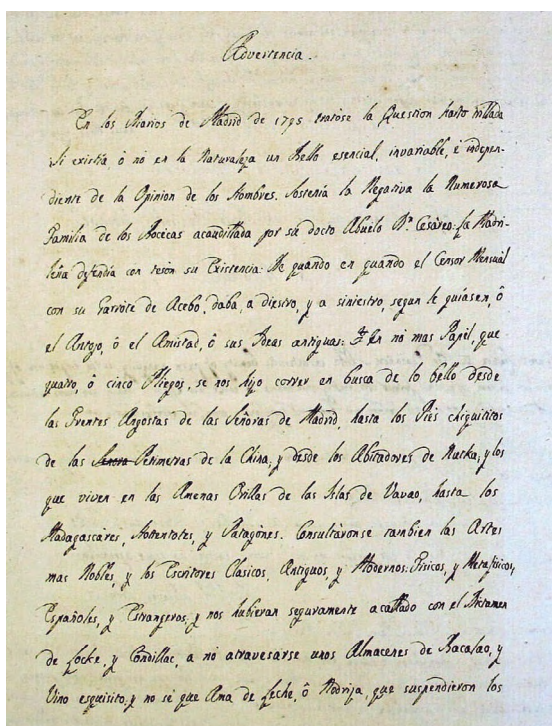 Advertencia.
En los Diarios de Madrid de 1795 tratóse la Question harto trillada
Si existia, ó nó en la Naturaleza un Bello esencial, invariable, é indepen-
diente de la Opinion de los Hombres. Sostenia la Negativa la Numerosa
Familia de los Bocicas acaudillada por su docto Abuelo Dn. Cesáreo: la Madri-
leña defendia con teson su Existencia: De quando en quando el Censor Mensual
con su Garrote de Acebo, daba, a diestro, y a siniestro, segun le guiasen, ó
el Antojo, ó el Amistad, ó sus Ideas antiguas: En no mas Papel, que
quatro, ó cinco Pliegos, se nos hizo correr en busca de lo bello desde
las Frentes Angostas de las Señoras de Madrid, hasta los Pies chiquititos
de las Petimetras de la China, y desde los Abitadores de Nutka, y los
que viven en las Amenas Orillas de las Islas de Vavao, hasta los
Madagascáres, Hotentotes, y Patagónes. Consultáronse tambien las Artes
mas Nobles, y los Escritores Clasicos, Antiguos, y Modernos: Fisicos, y Metafisicos,
Españoles, y Estrangeros, y nos hubieran seguramente acallado con el Dictamen
de Locke, y Condillac, a nó atravesarse unos Almacenes de Bacalao, y
Vino esquisito, y no sé que Ama de Leche, ó Nodriza, que suspendieron los